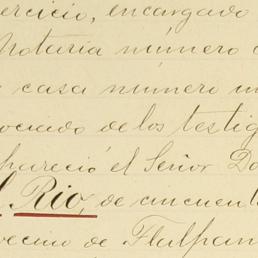 ercicio, encargado
Notaria número
casa número un
ociado de los testig
pareció el Señor Do
l Rio, de cincuent
vecino de Tlalpan